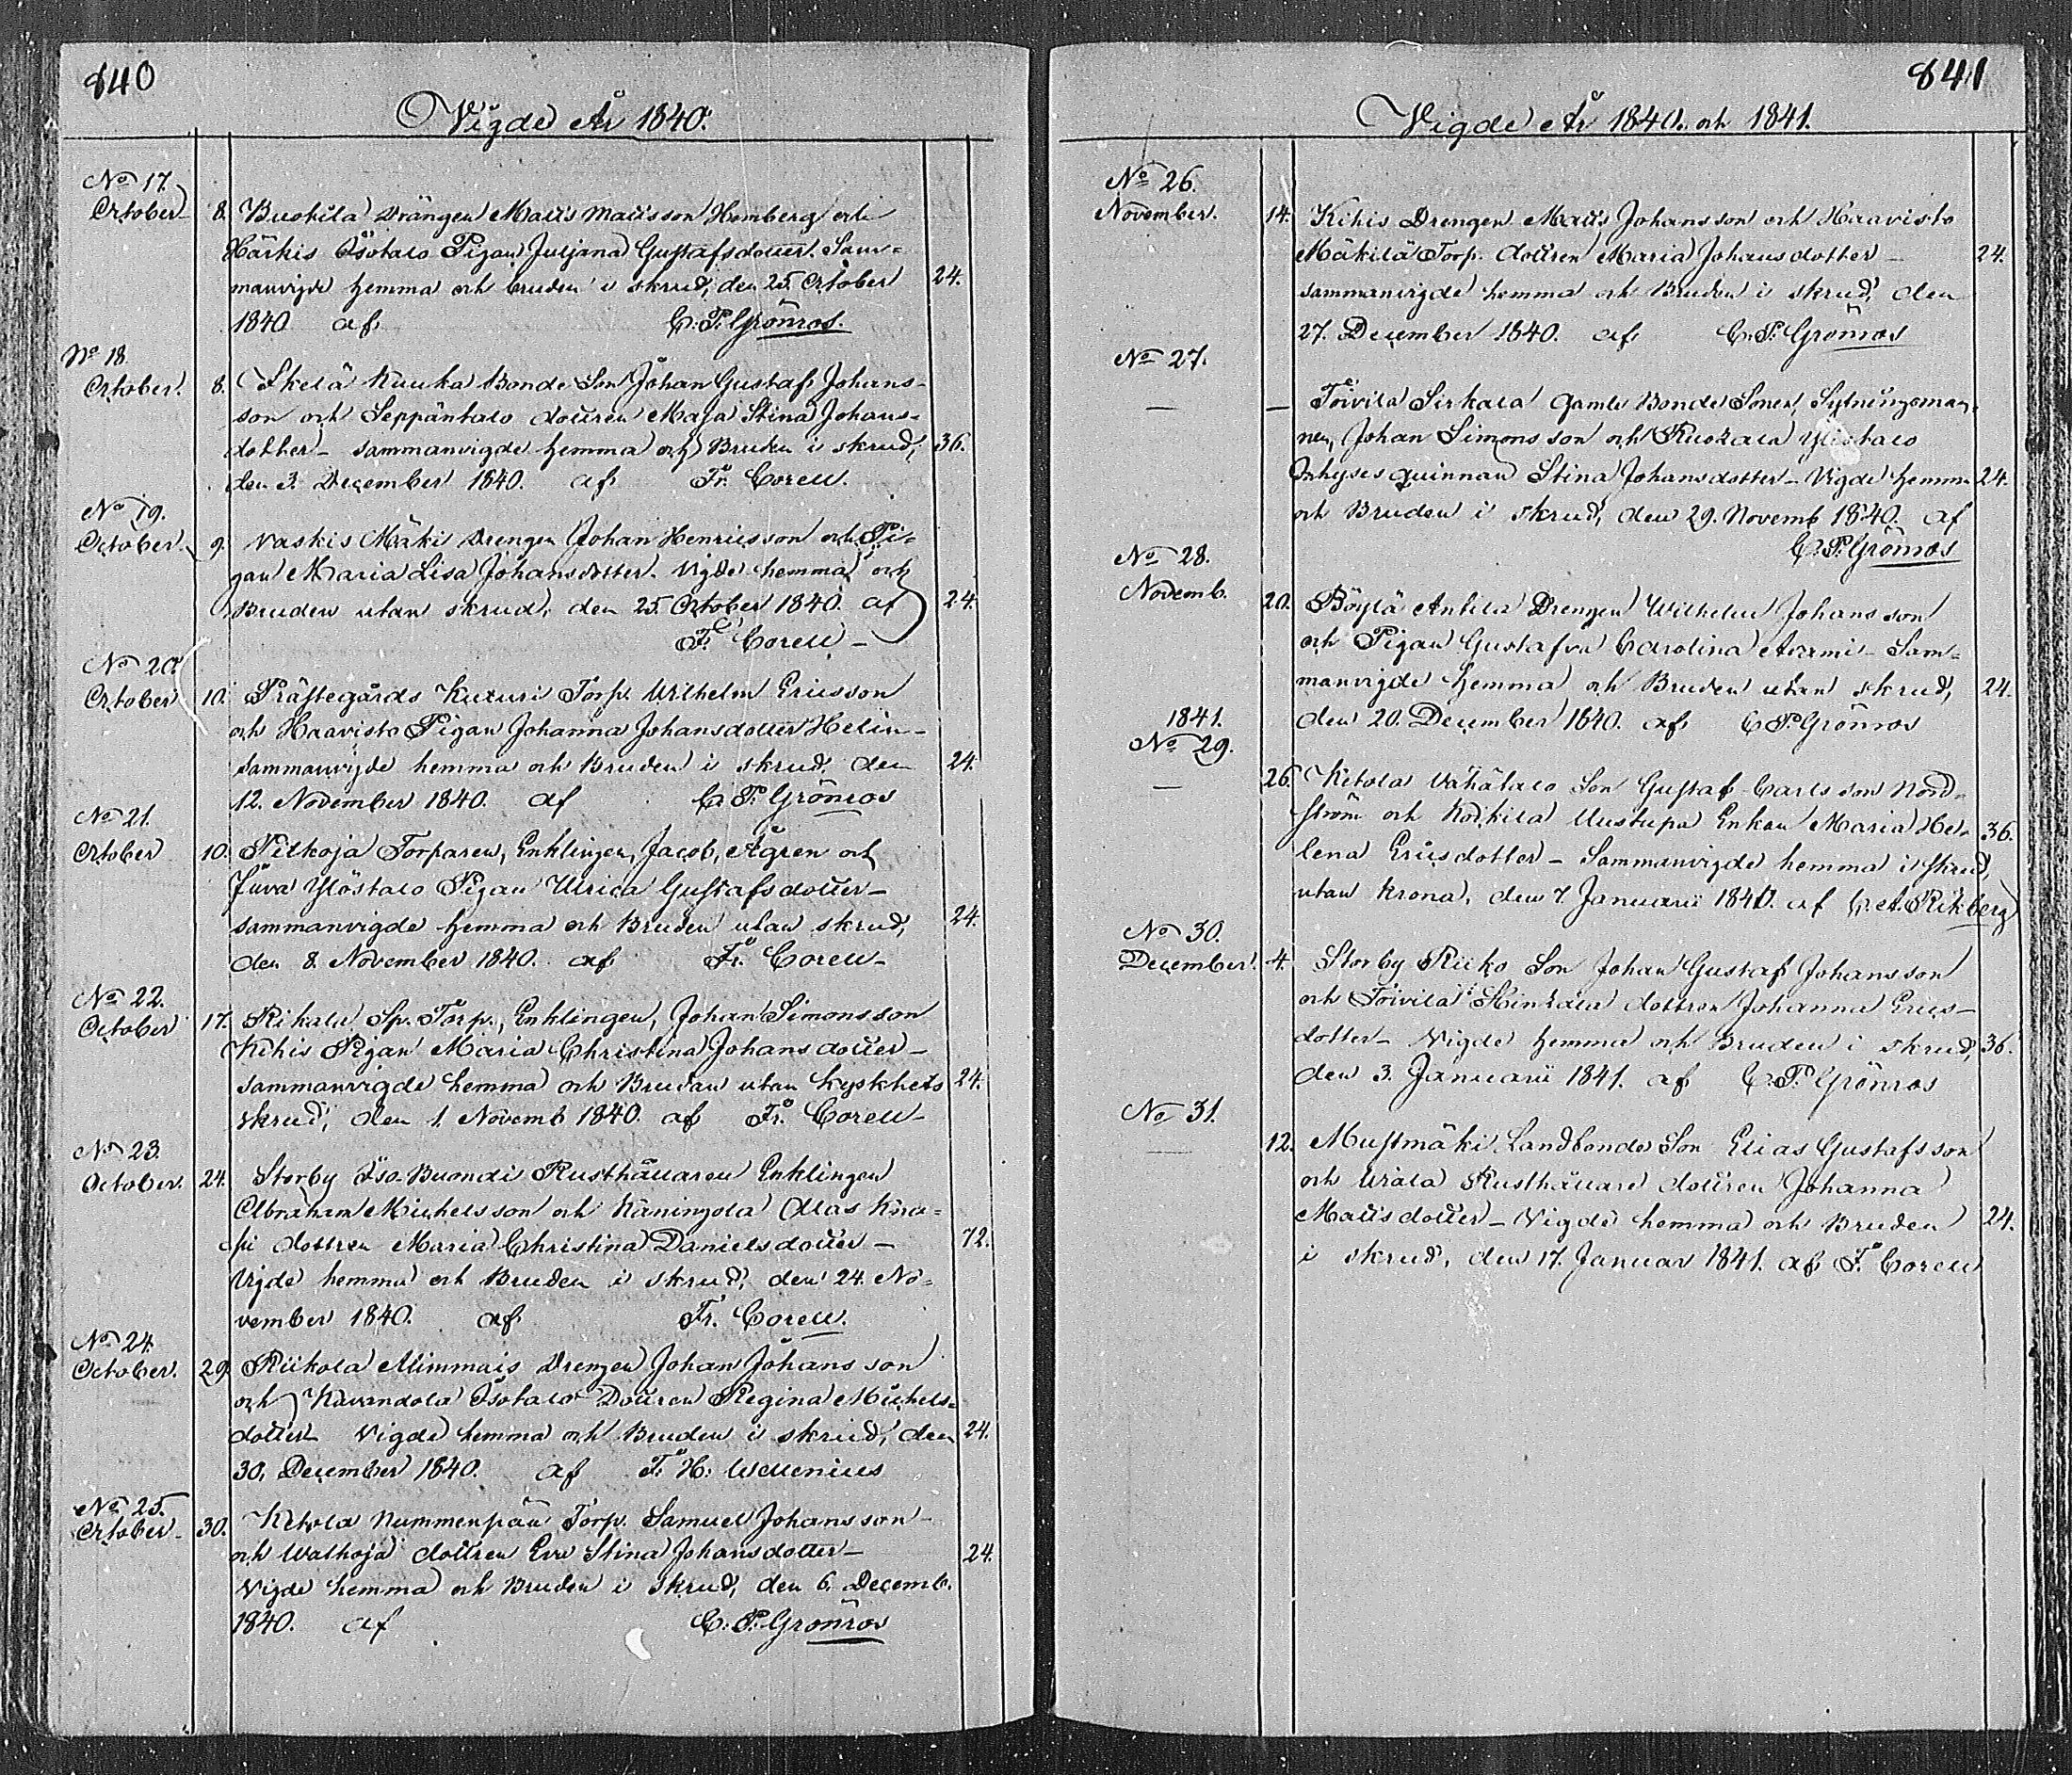 840
Vigde År 1840.
No 17.
October 8. Buskila Drängen Matts Mattsson Homberg och
Härkis Isotalo Pigan Juljana Gustafsdotter. Sam=
manvigde hemma och bruden i skrud, den 25. October 24.
1840 af C. P. Grönros.
No 18.
October. 8. Skelä Kuuka Bonde Son Johan Gustaf Johans-
son och Seppäntalo dottren Maja Stina Johans-
dotter – sammanvigde hemma och Bruden i skrud, 36.
den 3. December 1840. af Fr. Corell.
No 19.
October. 9. Vaskis Mäki Drengen Johan Henricsson och Pi=
gan Maria Lisa Johansdotter. Vigde hemma och
Bruden utan skrud, den 25. October 1840. af 24.
Fr. Corell –
No 20.
October 10. Prästegårds Kuxuri Torp. Wilhelm Ericsson
och Haavisto Pigan Johanna Johansdotter Helin –
sammanvigde hemma och Bruden i skrud, den 24.
12. November 1840. af C. P. Grönros
No 21.
October 10. Pitkoja Torparen, Enklingen, Jacob, Ågren och
Juva Ylöstalo Pigan Ulrica Gustafsdotter –
sammanvigde hemma och Bruden utan skrud, 24.
den 8. November 1840. af Fr. Corell –
No 22.
October 17. Rikala Sp. Torp., Enklingen, Johan Simonsson
Kihis Pigan Maria Christina Johansdotter –
sammanvigde hemma och Brudan utan kyskhets 24.
skrud, den 1. Novemb 1840. af Fr. Corell –
No 23.
October. 24. Storby Iso-Buondi Rusthållaren Enklingen
Abraham Michelsson och Käningola Alas
dottren Maria Christina Danielsdotter – 72.
Vigde hemma och Bruden i skrud, den 24. No=
vember 1840. af Fr. Corell.
No 24.
October. 29. Riikola Mimmais Drengen Johan Johansson
och Kavandola Isotalo Dottren Regina Michels=
dotter Vigde hemma och Bruden i skrud, den 24.
30. December 1840. af F. H. Wellenius
No 25.
October – 30. Ketola Nummenpää Torp. Samuel Johansson –
och Walkoja dottren Eva Stina Johansdotter – 24.
Vigde hemma och Bruden i skrud, den 6. Decemb.
1840. af C. P. Grönros
841
Vigde År 1840. och 1841.
No 26.
November. 14. Kihis Drengen Matts Johansson och Haavisto
Mäkilä Torp. dottren Maria Johansdotter – 24.
sammanvigde hemma och Bruden i skrud, den
27. December 1840. af C. P. Grönros
No 27.
— — Toivila Sirkala Gamle Bonde Sonen, Sytningsman-
nen, Johan Simonsson och Ylöstalo
Inhyses quinnan Stina Johansdotter – Vigde hemma 24.
och Bruden i skrud, den 29. Novemb 1840. af
C. P. Grönros
No 28.
Novemb. 20. Böylä Antila Drengen Wilhelm Johansson
och Pigan Gustafva Carolina – Sam=
manvigde hemma och Bruden utan skrud, 24.
den 20. December 1840. af C. P. Grönros
1841.
No 29.
— 26. Ketola Vähätalo Son Gustaf Carlsson Nord=
ström och Uustupa Enkan Maria He- 36.
lena Ericsdotter – Sammanvigde hemma i skrud,
utan krona, den 7. Januarii 1841. af C. A. Rikberg
No 30.
December. 4. Storby Riiko Son Johan Gustaf Johansson
och Toivila Hinkala dottren Johanna Erics-
dotter – Vigde hemma och Bruden i skrud, 36.
den 3. Januarii 1841. af C. P. Grönros
No 31.
— 12. Mustmäki Landbonde Son Elias Gustafsson
och Uräla Rusthållare dottren Johanna
Mattsdotter – Vigde hemma och Bruden 24.
i skrud, den 17. Januar 1841. af F. Corell